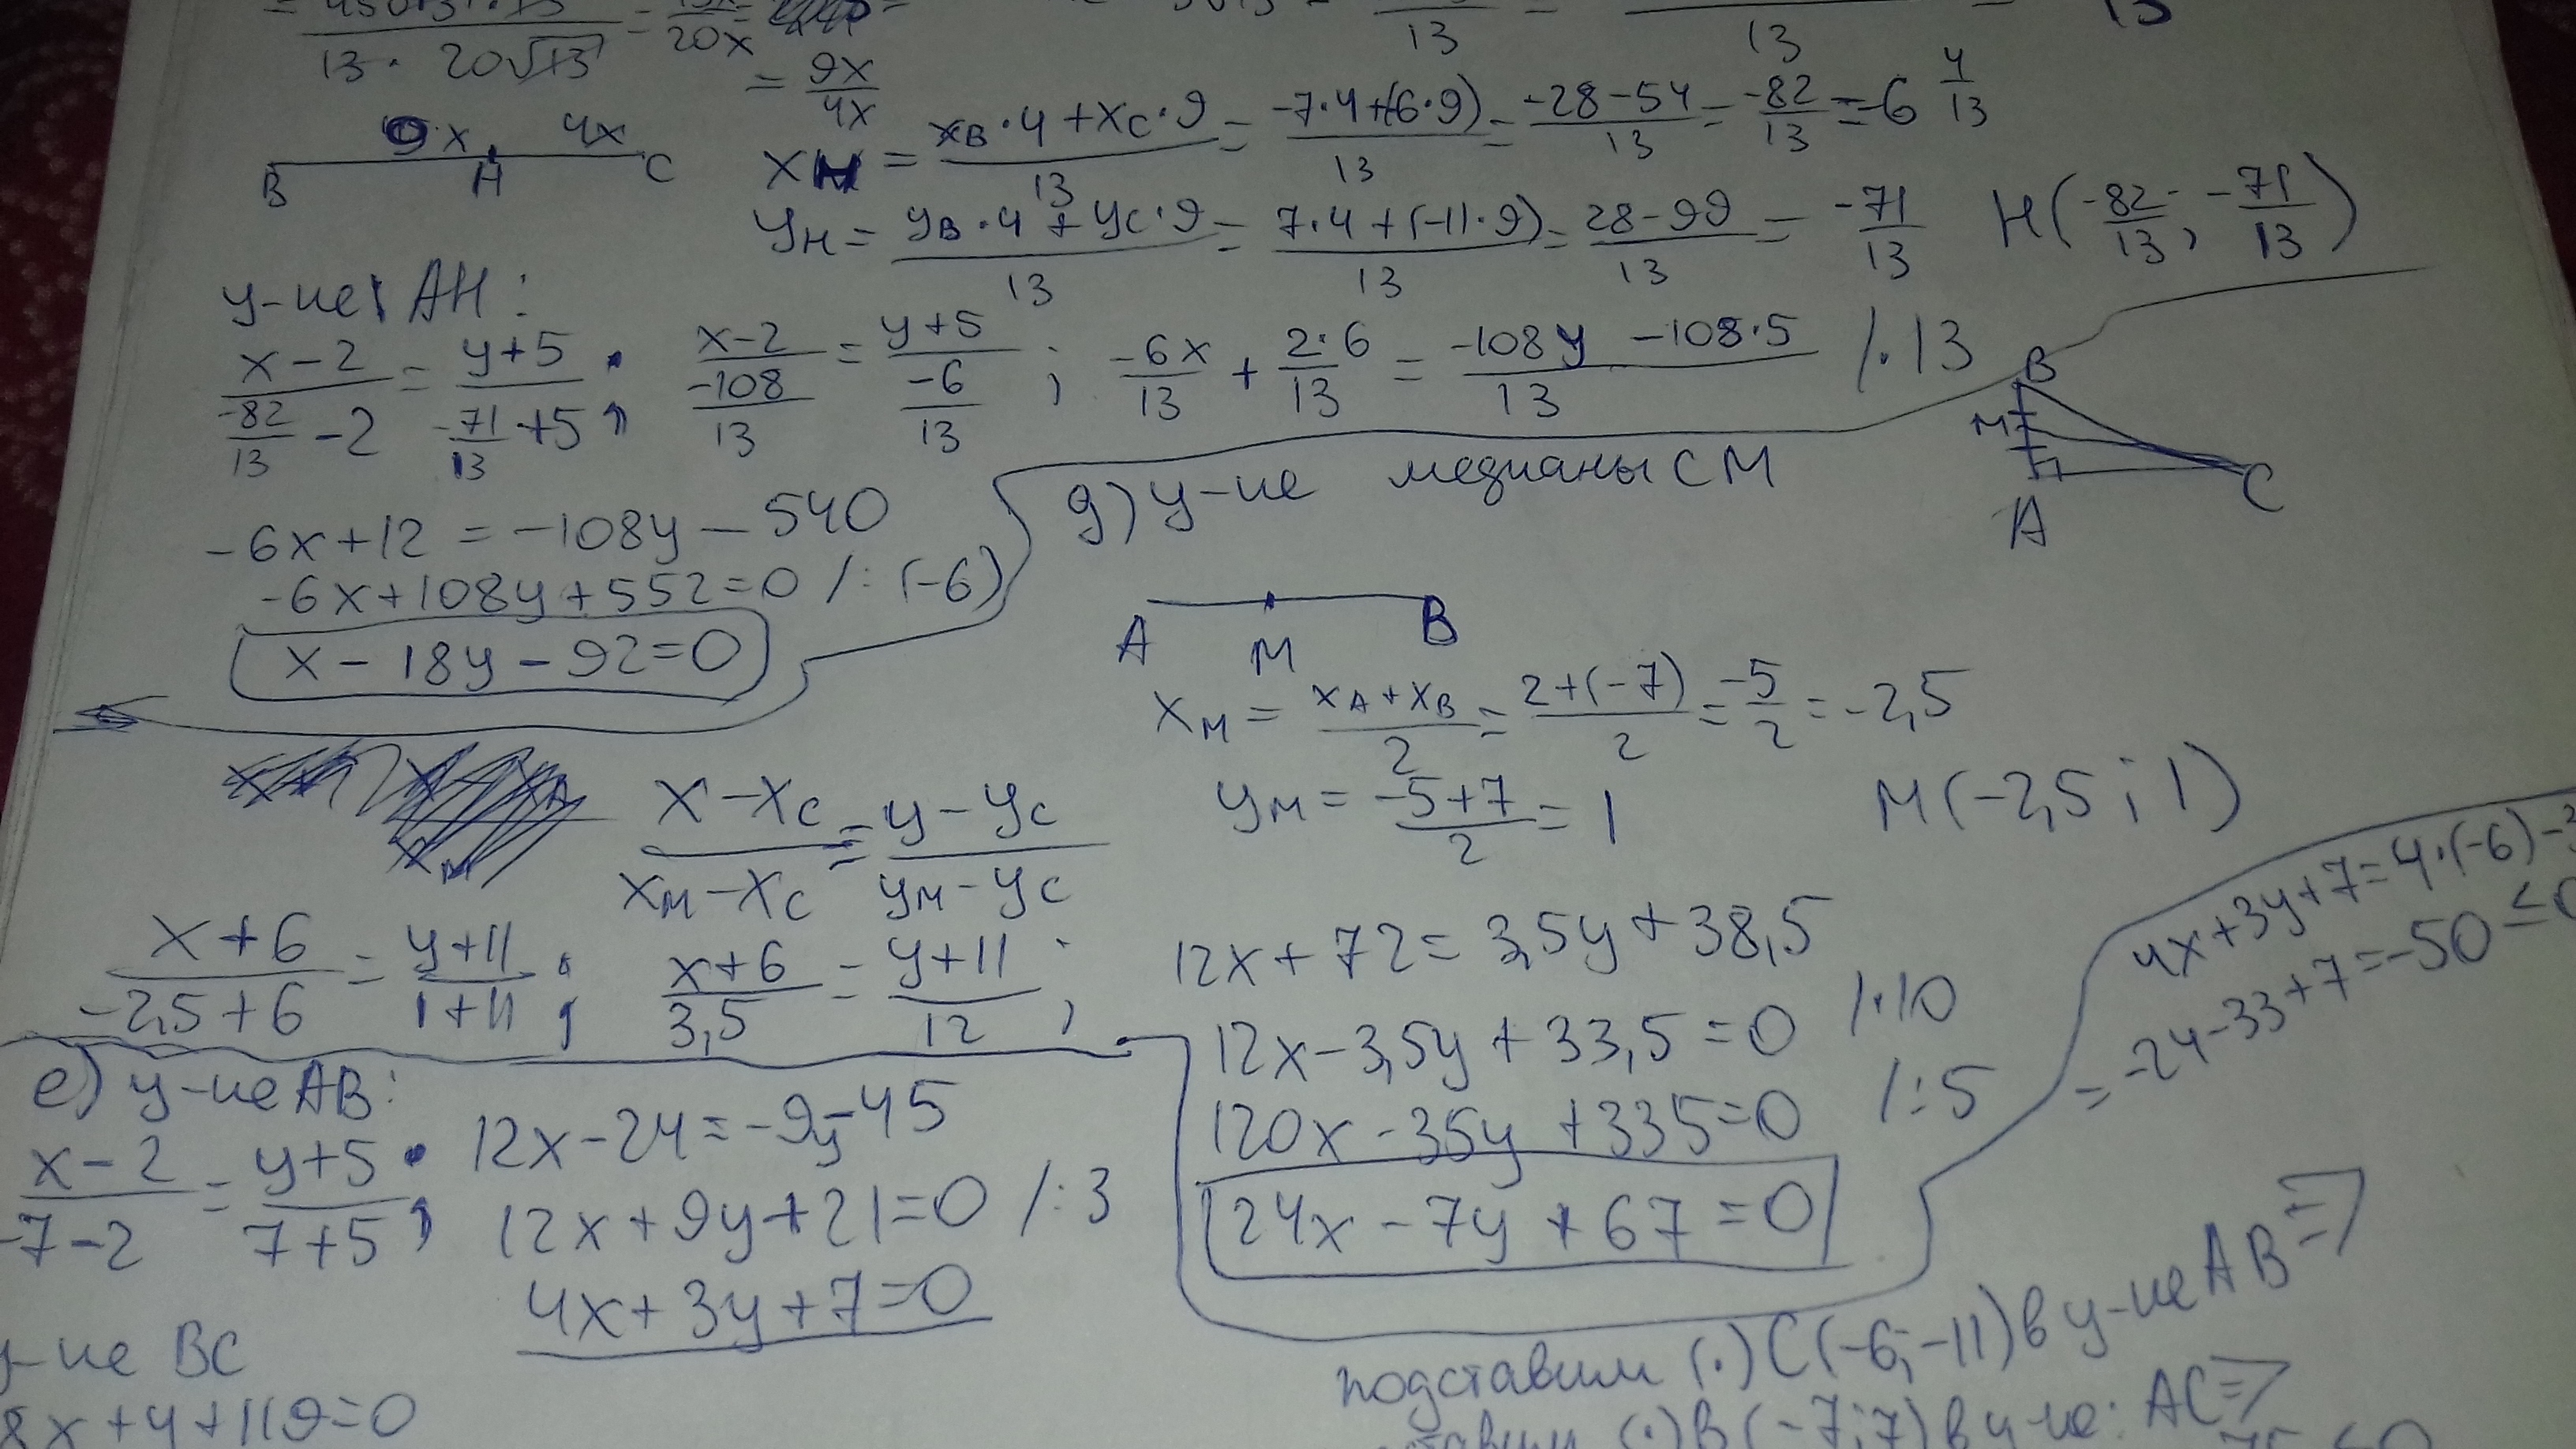 13 · 20√13
20x
= 9x/4x
13
13
13
9x 4x
B H C
xH = (xB·4+xC·9)/13 = (-7·4+(-6·9))/13 = (-28-54)/13 = -82/13 = -6 4/13
yH = (yB·4+yC·9)/13 = (7·4+(-11·9))/13 = (28-99)/13 = -71/13 H(-82/13; -71/13)
у-ие AH:
(x-2)/(-82/13 -2) = (y+5)/(-71/13 +5); (x-2)/(-108/13) = (y+5)/(-6/13); -6x/13 + 2·6/13 = (-108y -108·5)/13 /·13
-6x+12 = -108y - 540
-6x+108y+552=0 /:(-6)
x - 18y - 92=0
д) у-ие медианы CM
B
M
A
C
A M B
xM = (xA+xB)/2 = (2+(-7))/2 = -5/2 = -2,5
yM = (-5+7)/2 = 1 M(-2,5; 1)
(x-xC)/(xM-xC) = (y-yC)/(yM-yC)
(x+6)/(-2,5+6) = (y+11)/(1+11); (x+6)/3,5 = (y+11)/12;
12x+72= 3,5y+38,5
12x-3,5y+33,5=0 /·10
120x-35y+335=0 /:5
24x-7y+67=0
е) у-ие AB:
(x-2)/(-7-2) = (y+5)/(7+5);
12x-24=-9y-45
12x+9y+21=0 /:3
4x+3y+7=0
у-ие BC
8x+y+119=0
4x+3y+7=4·(-6)-3
= -24-33+7=-50≤0
подставим (·)C(-6;-11) в у-ие AB=>
(·)B(-7;7) в у-ие: AC=>